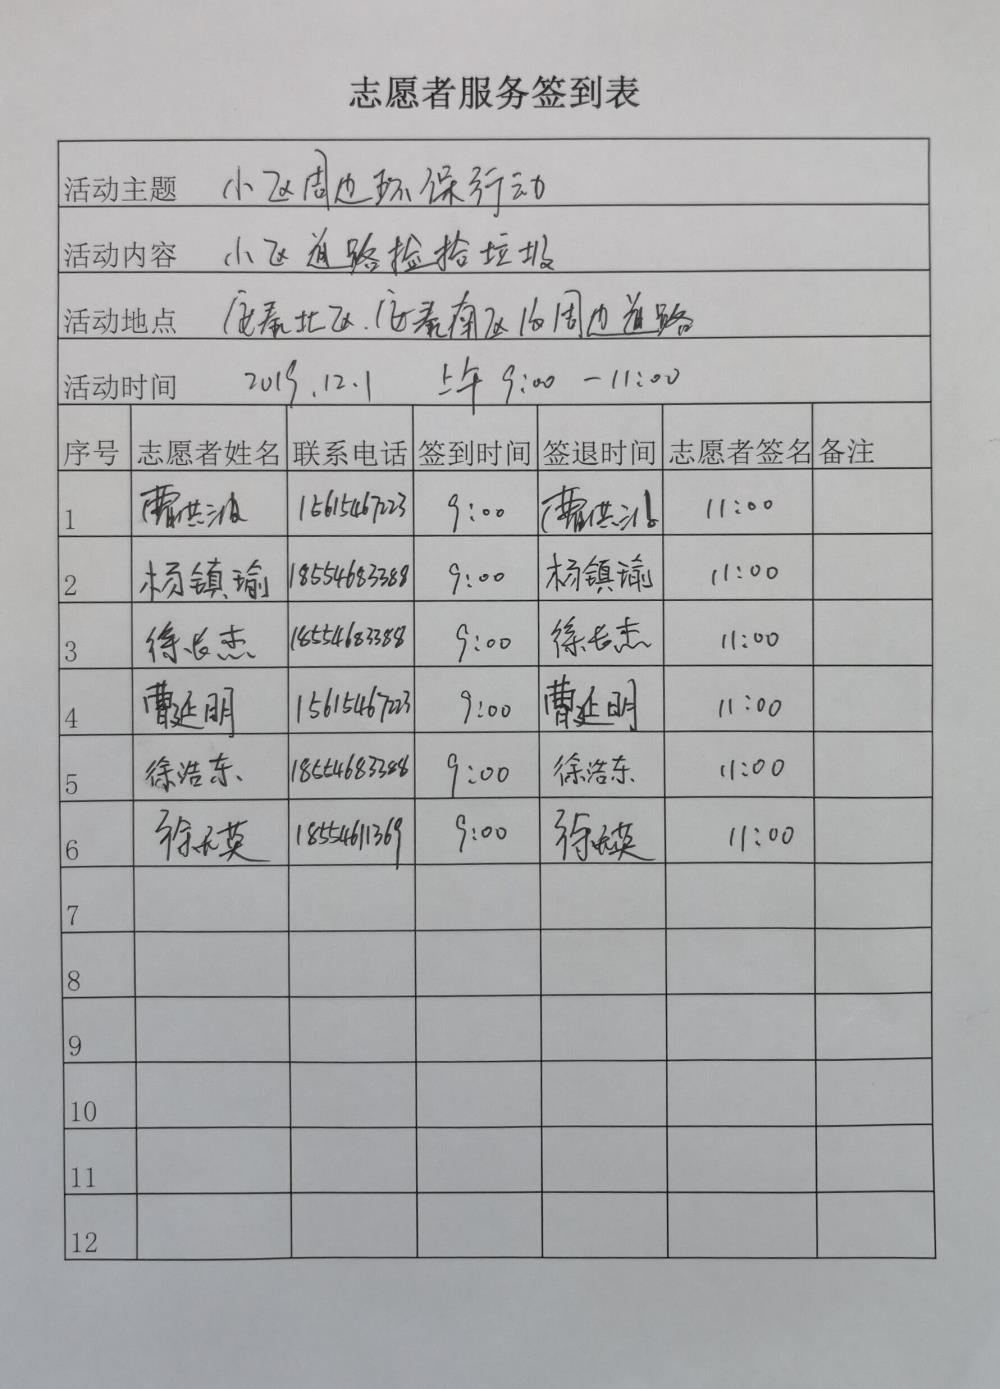 志愿者服务签到表
活动主题 小区周边环保行动
活动内容 小区道路捡拾垃圾
活动地点 北区、南区的周边道路
活动时间 2019.12.1 上午 9:00 - 11:00
序号 志愿者姓名 联系电话 签到时间 签退时间 志愿者签名 备注
1 曹洪波 15615467223 9:00 曹洪波 11:00
2 杨镇瑜 18554683388 9:00 杨镇瑜 11:00
3 徐长杰 18554683388 9:00 徐长杰 11:00
4 曹延明 15615467223 9:00 曹延明 11:00
5 徐浩东 18554683388 9:00 徐浩东 11:00
6 徐英 18554611369 9:00 徐英 11:00
7
8
9
10
11
12